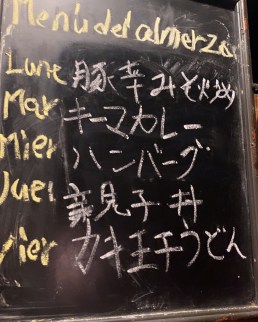 Menú del almerzo
Lune 豚辛みそ炒め
Mar キーマカレー
Mier ハンバーグ
Juev 親子丼
Vier カキ玉子うどん